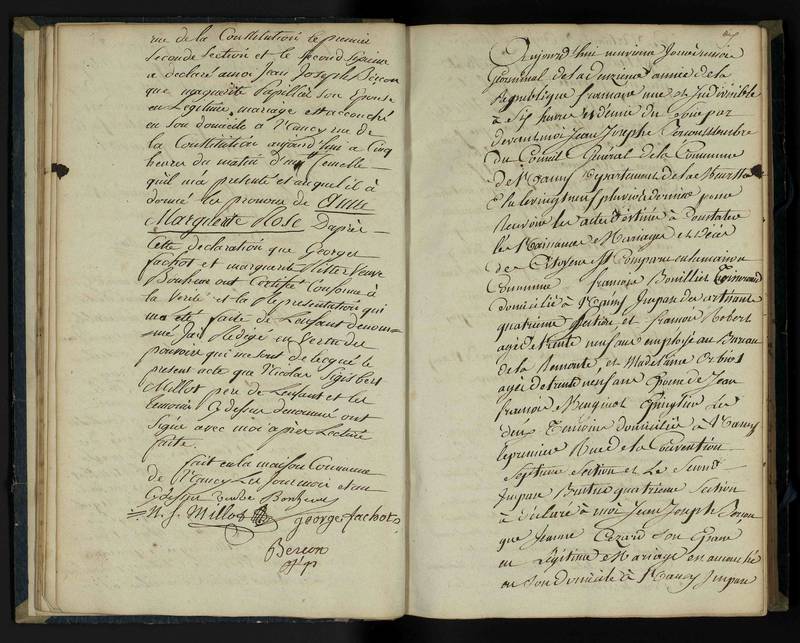 rue de la Constitution le premier
Seconde Section et le Second
a declaré a moi Jean Joseph Bercon
que marguerite Papillier son Epouse
en Legitime mariage est accouché
en son domicile a Nancy rue de
la Constitution aujourd'hui a Cinq
heures du matin d'un femelle
qu'il m'a presenté et auquel il à
donné les prenoms de Anne
Marguerite Rose D'après
cette declaration que George
fachot et marguerite veuve
Bonheur ont Certifié Conforme à
la verité et la Représentation qui
m'a eté faite de L'enfant denom-
mé J'ai Rédigé en vertu des
pouvoirs qui me sont délegués le
present acte que Nicolas Sigisbert
Millot pere de L'enfant et les
temoins Cy dessus denommé ont
signé avec moi après Lecture
faite.
fait en la maison Commune
de Nancy Les Jour mois et an
Bonheur
N. S. Millot george fachot
Bercon
off. p.
Aujourd'hui neuvieme Jour du mois
Germinal de la Deuzieme année de la
Republique francaise une et Indivisible
a Six heures et demie du Soir par
devant moi Jean Joseph Bercon Membre
du Conseil Général de la Commune
de Nancy Departement de la Meurthe
Elu le vingt neuf pluviose dernier pour
Recevoir les actes destinés à Constater
les Naissances Mariages et Décès
des Citoyens Est Comparu en la maison
Commune francois Bouillier
domicilié à Nancy Impasse des artisans
quatrieme Section, et francois Robert
agé de trente neuf ans employé au Bureau
de la Remonte, et Madelaine
agée de trente neuf ans Epouse de Jean
francois Mengenot Epinglier Les
deux temoins domiciliés à Nancy
le premier Rue de la Convention
Septieme Section et Le Second
Impasse Brutus quatrieme Section
a déclaré à moi Jean Joseph Bercon
que Jeanne Cezard son Epouse
en Légitime Mariage est accouchée
en Son domicile à Nancy Impasse